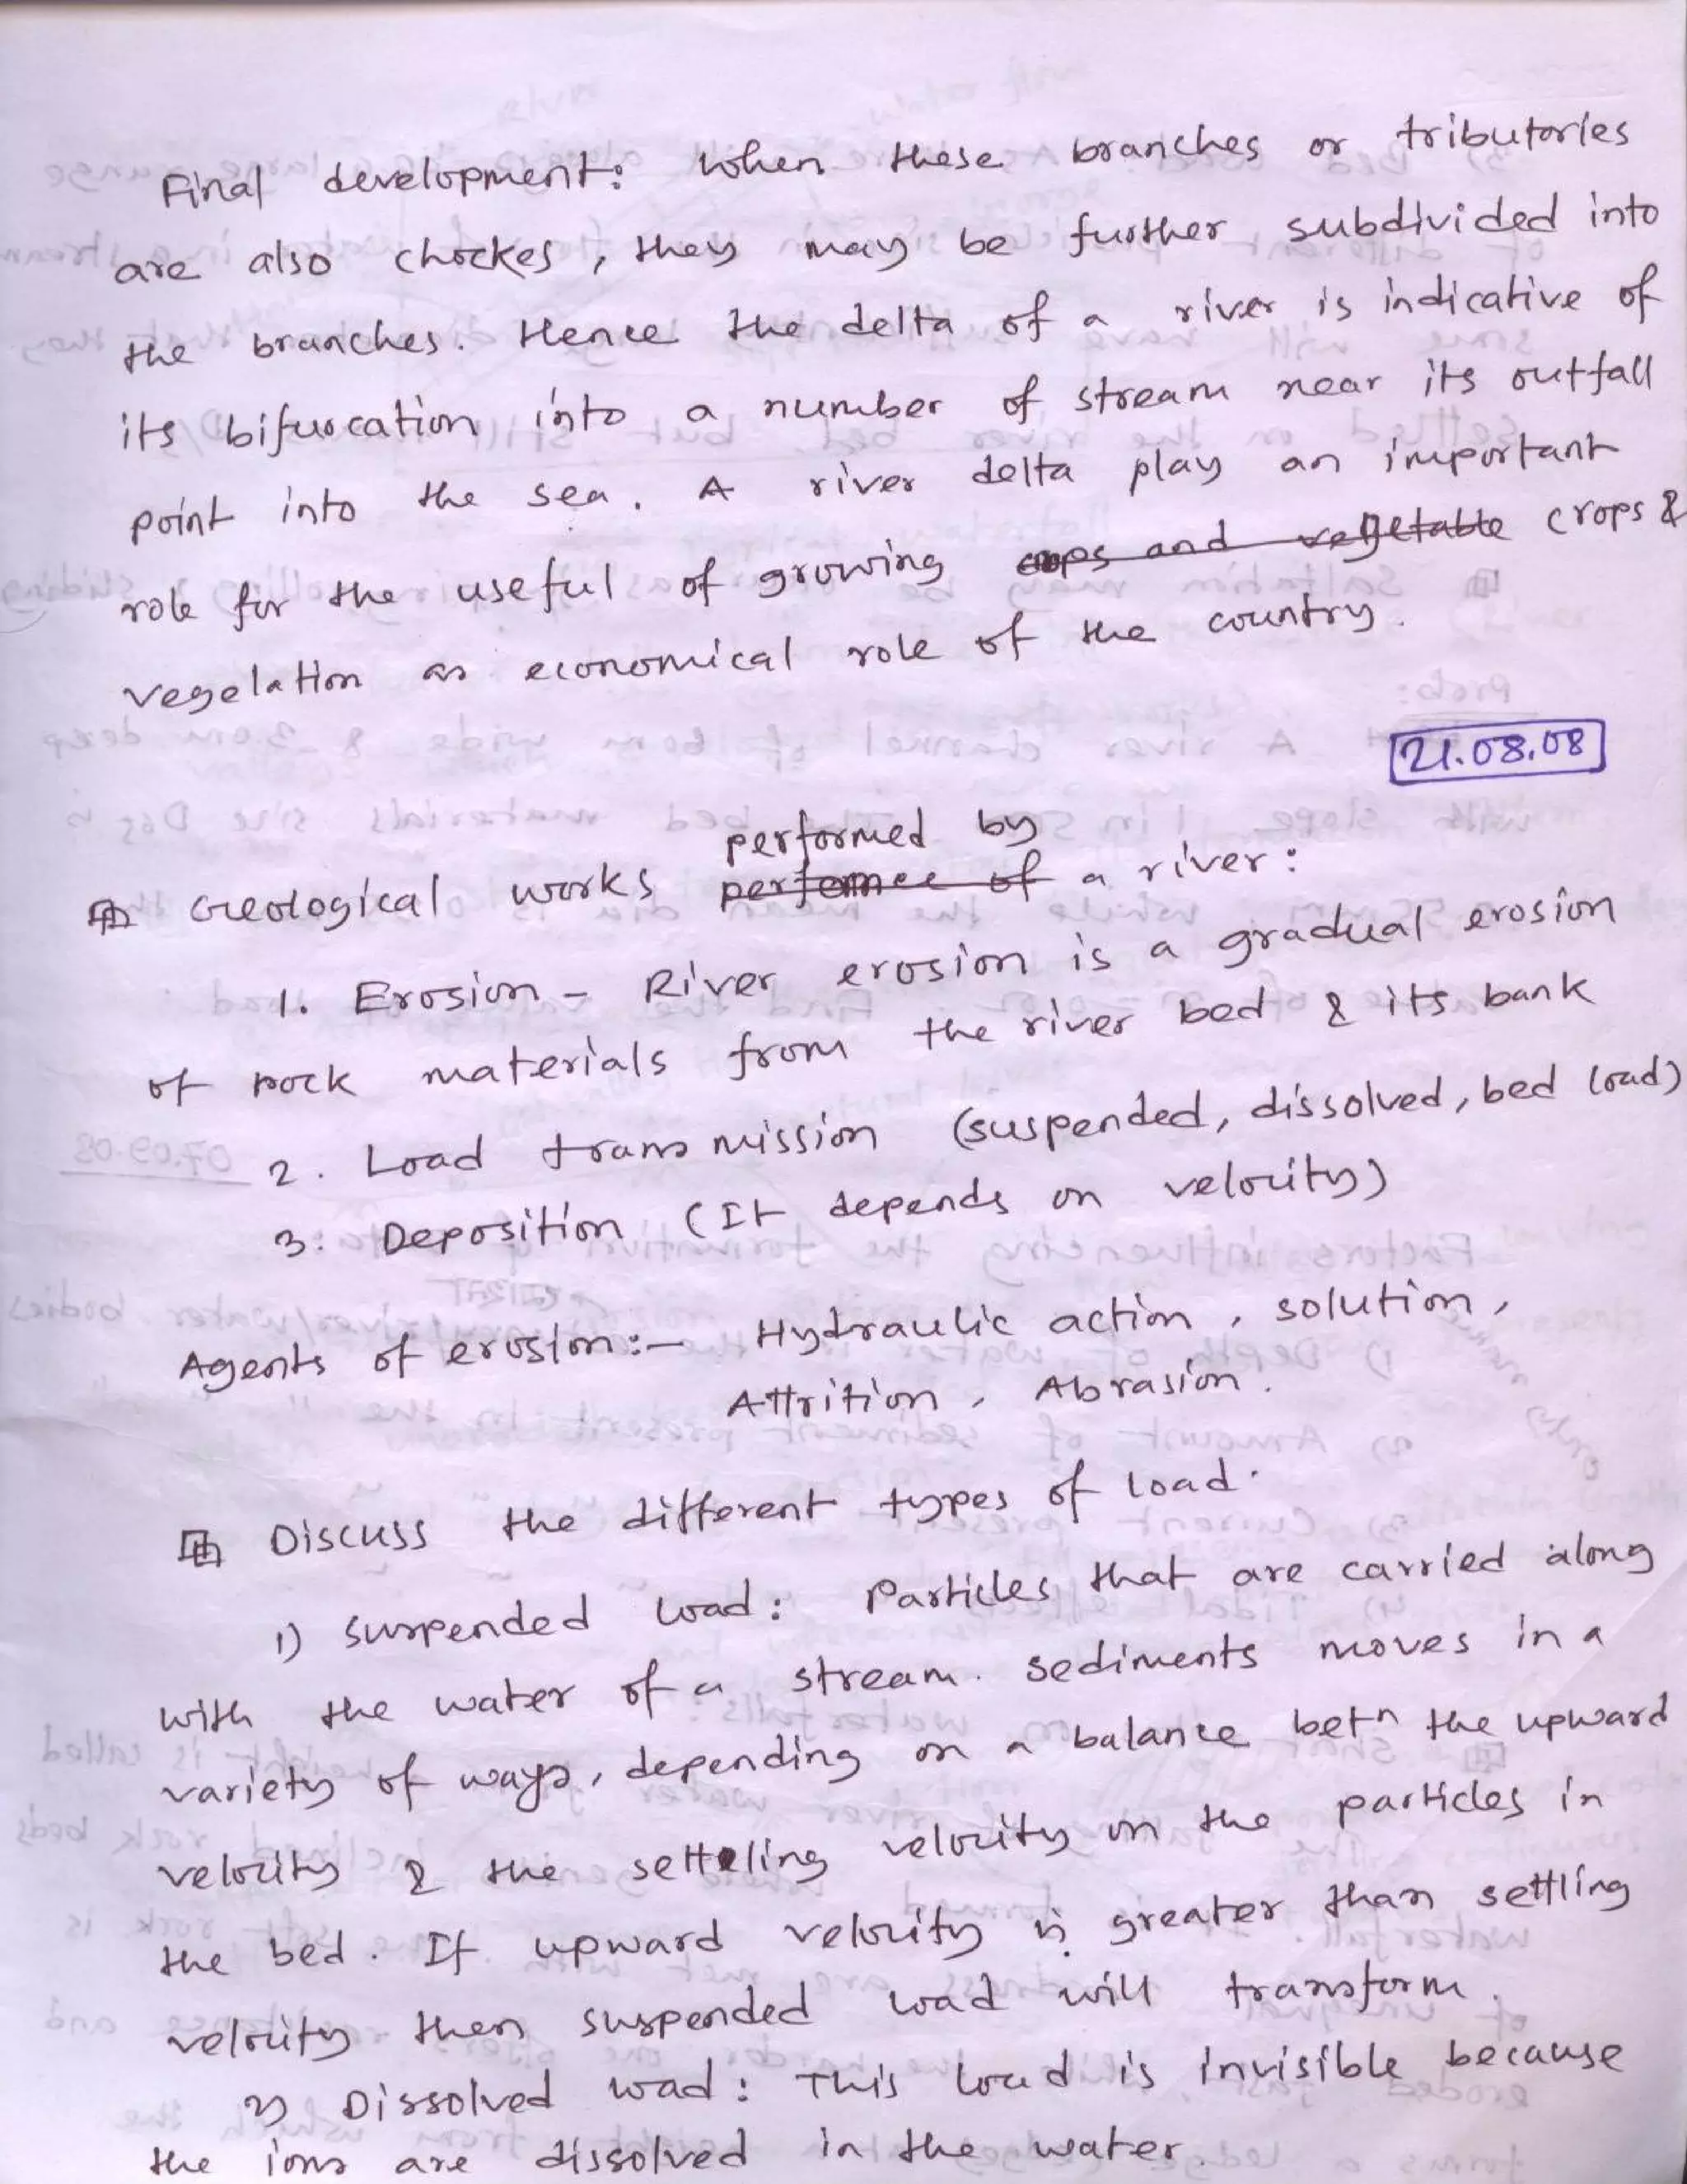 Final development: When these branches or tributories
are also chockes, they may be further subdivided into
the branches. Hence the delta of a river is indicative of
its bifurcation into a number of stream near its outfall
point into the sea. A river delta play an important
role for the useful of growing crops and vegetable crops &
vegelation as economical role of the country.
21.08.08
performed by
Geological works performee of a river:
1. Erosion - River erosion is a gradual erosion
of rock materials from the river bed & its bank
2. Load transmission (suspended, dissolved, bed load)
3. Deposition (It depends on velocity)
Agents of erosion:- Hydraulic action, solution,
Attrition, Abrasion.
Discuss the different types of load.
1) Suspended load: Particles that are carried along
with the water of a stream. Sediments moves in a
variety of ways, depending on a balance betn the upward
velocity & the setteling velocity on the particles in
the bed. If upward velocity is greater than settling
velocity then suspended load will transform.
2) Dissolved load: This load is invisible because
the ions are dissolved in the water.